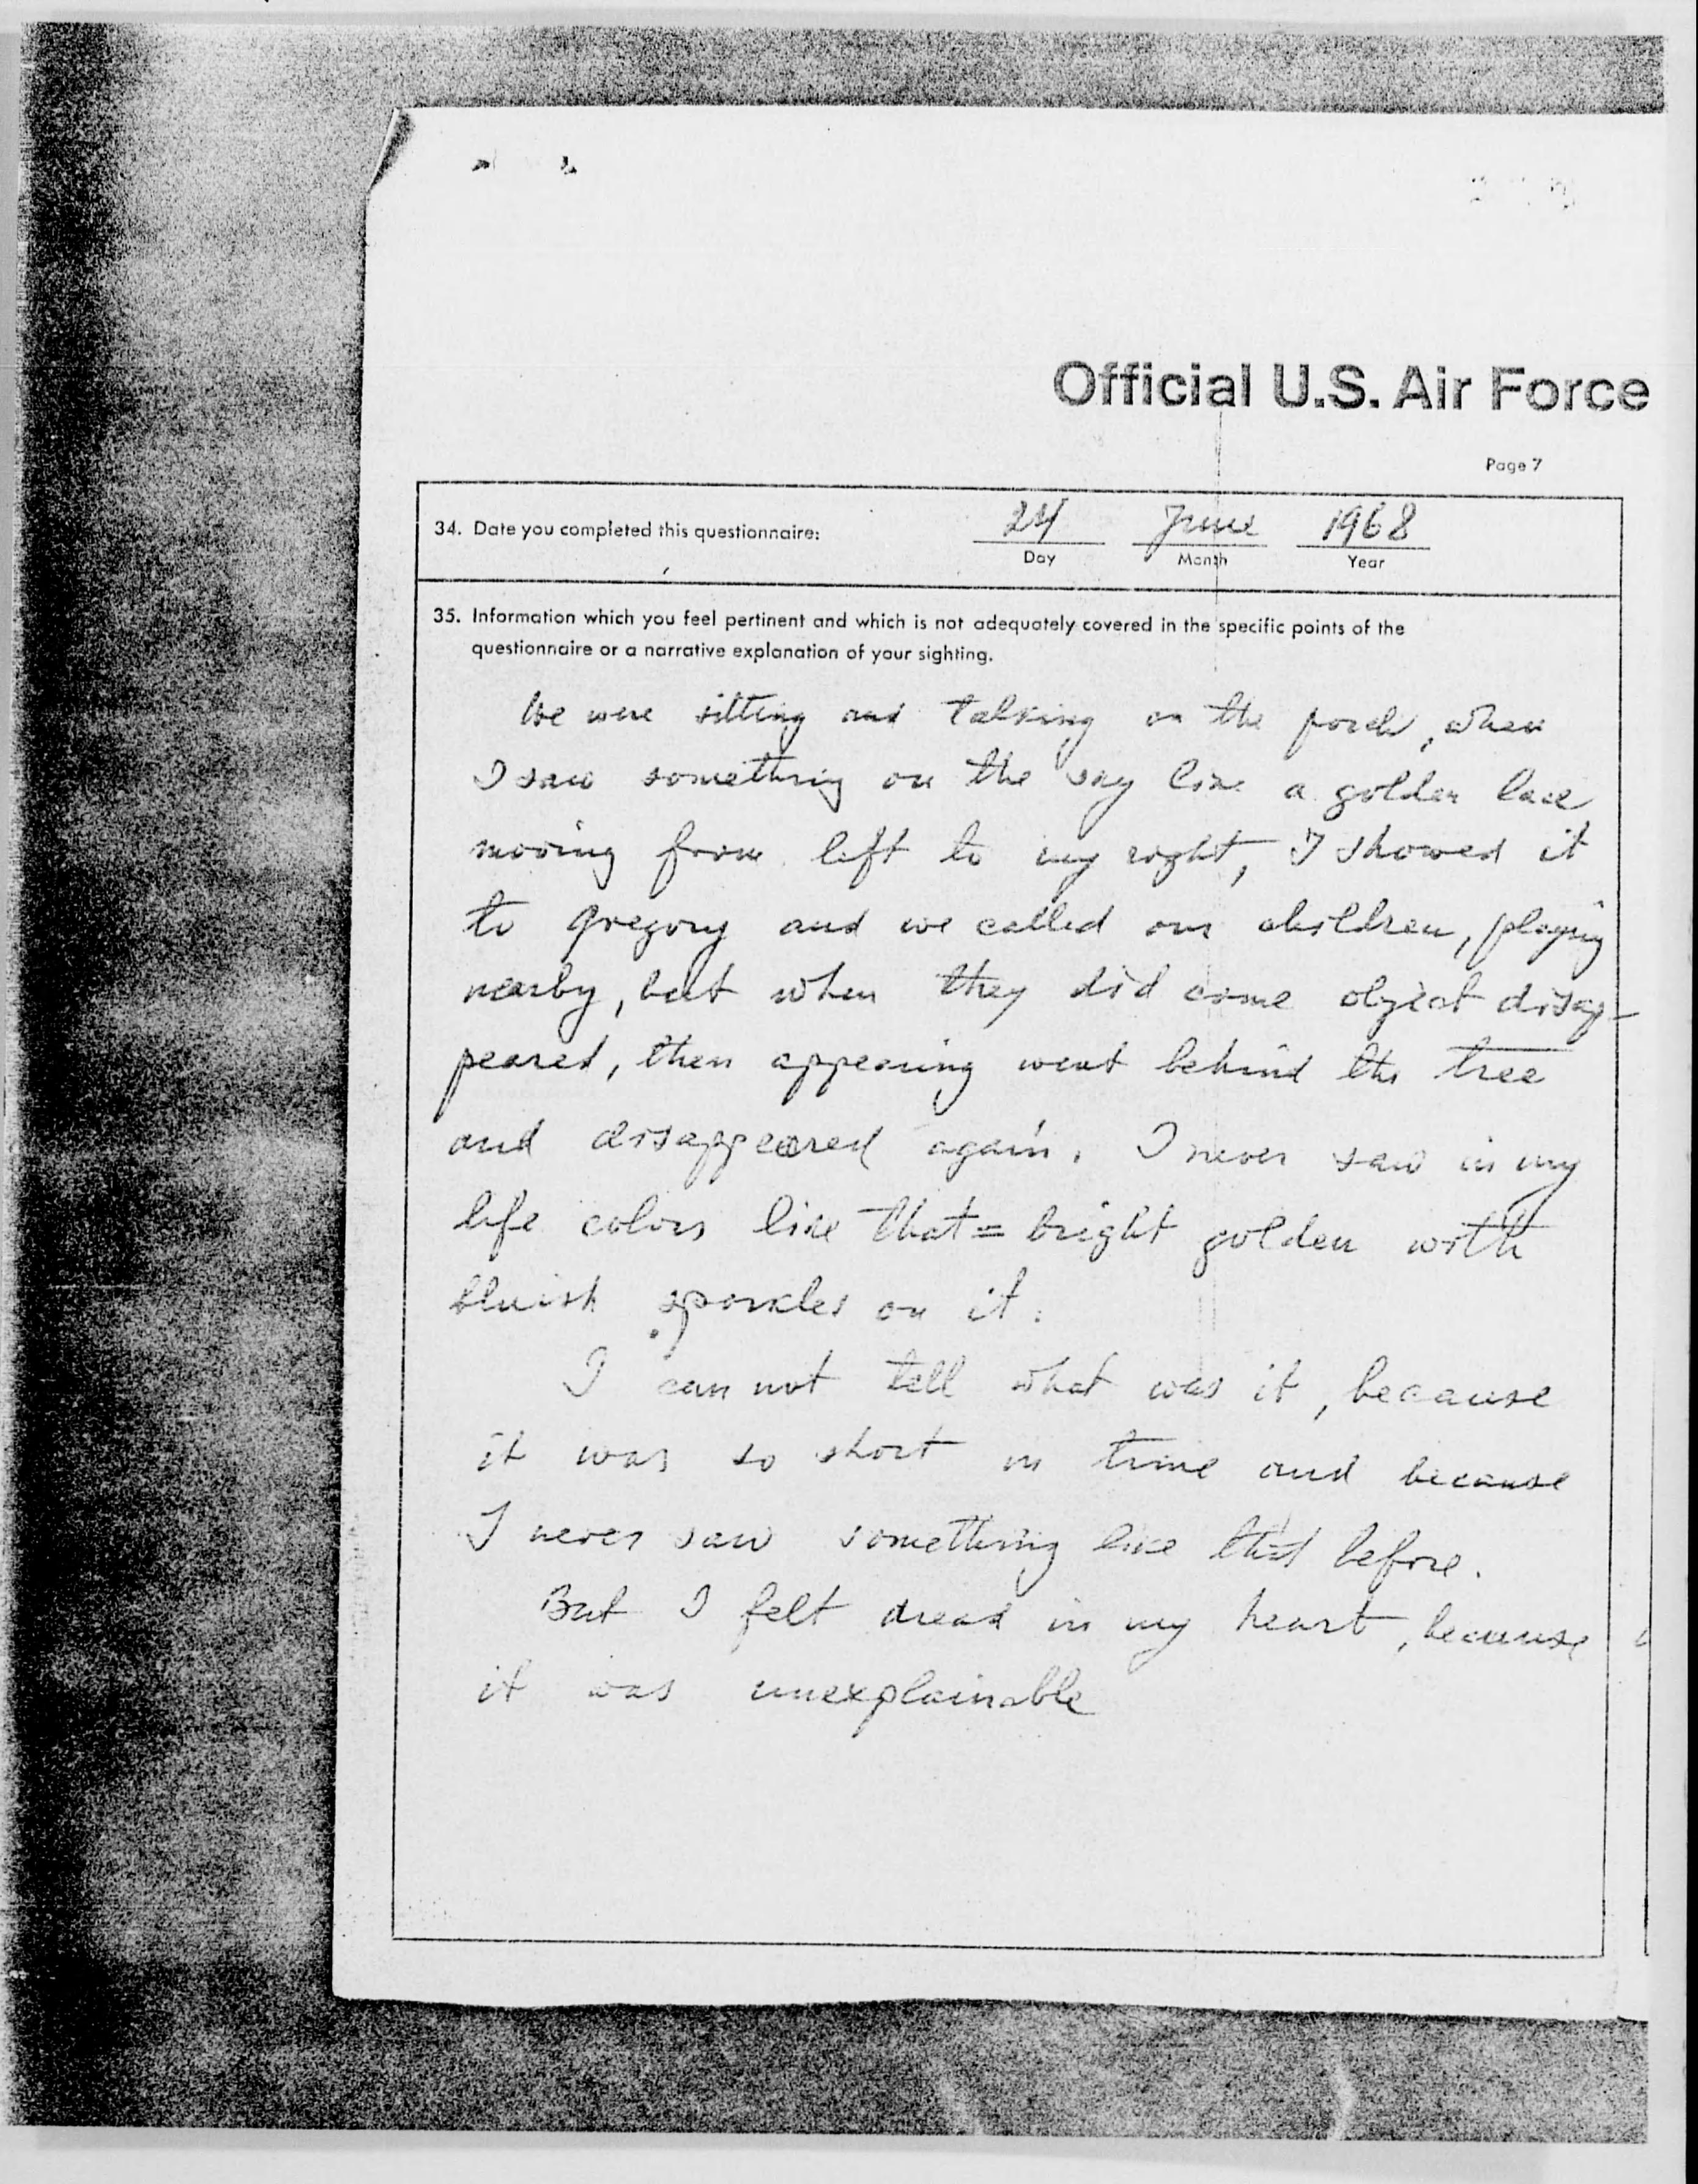 Official U.S. Air Force
Page 7
34. Date you completed this questionnaire: 24 June 1968
Day Month Year
35. Information which you feel pertinent and which is not adequately covered in the specific points of the
questionnaire or a narrative explanation of your sighting.
We were sitting and talking on the porch, when
I saw something on the sky like a golden lace
moving from left to my right, I showed it
to Gregory and we called our children, playing
nearby, but when they did come object disap-
peared, then appearing went behind the tree
and disappeared again. I never saw in my
life colors like that = bright golden with
bluish sparkles on it.
I can not tell what was it, because
it was so short in time and because
I never saw something like that before.
But I felt dread in my heart, because
it was unexplainable